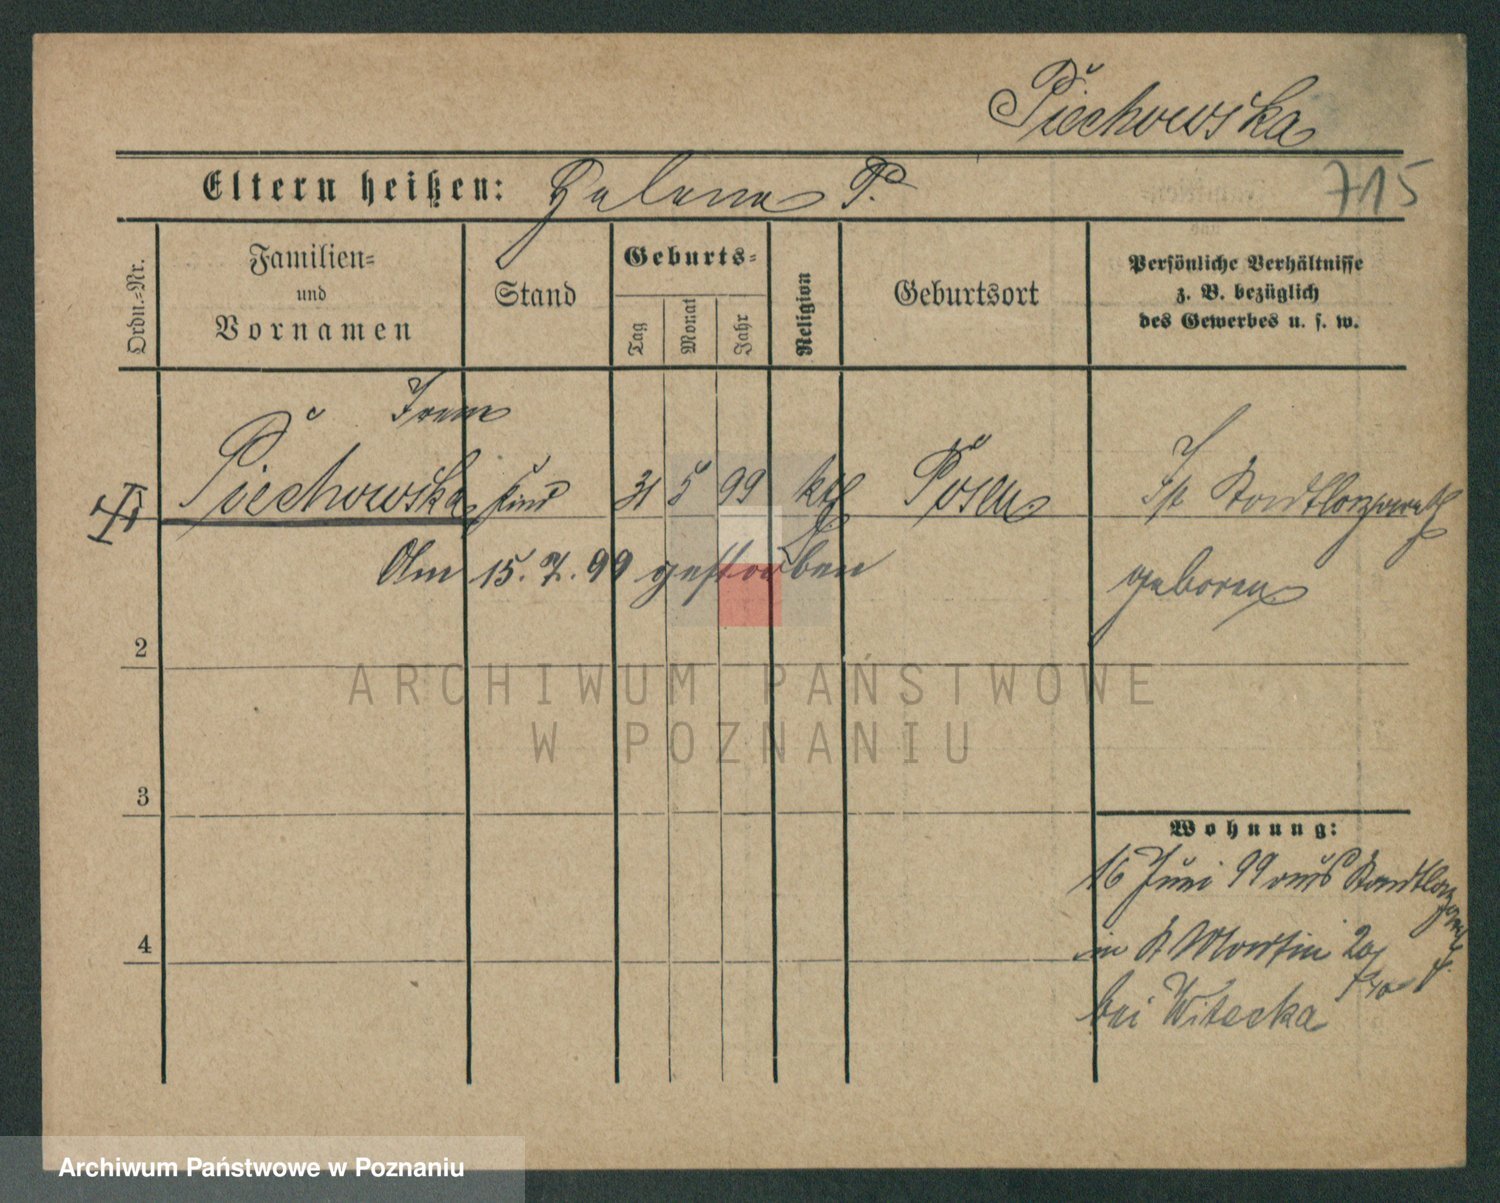 Piechowska
Eltern heißen: Helena P.
715
Ordn.-Nr.
Familien-
und
Vornamen
Stand
Geburts-
Tag
Monat
Jahr
Religion
Geburtsort
Persönliche Verhältnisse
z. B. bezüglich
des Gewerbes u. s. w.
Irene
Piechowska Kind 31 5 99 kth Posen
Ist Stadtlazareth
geboren
Am 15. 7. 99 gestorben
2
3
4
Wohnung:
16 Juni 99 aus Stadtlazareth
in St Martin 20
bei Witecka
ARCHIWUM PAŃSTWOWE
W POZNANIU
Archiwum Państwowe w Poznaniu